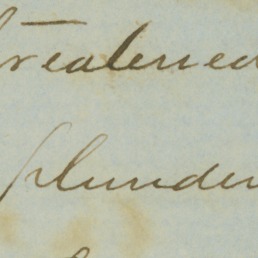 treatened
plunder